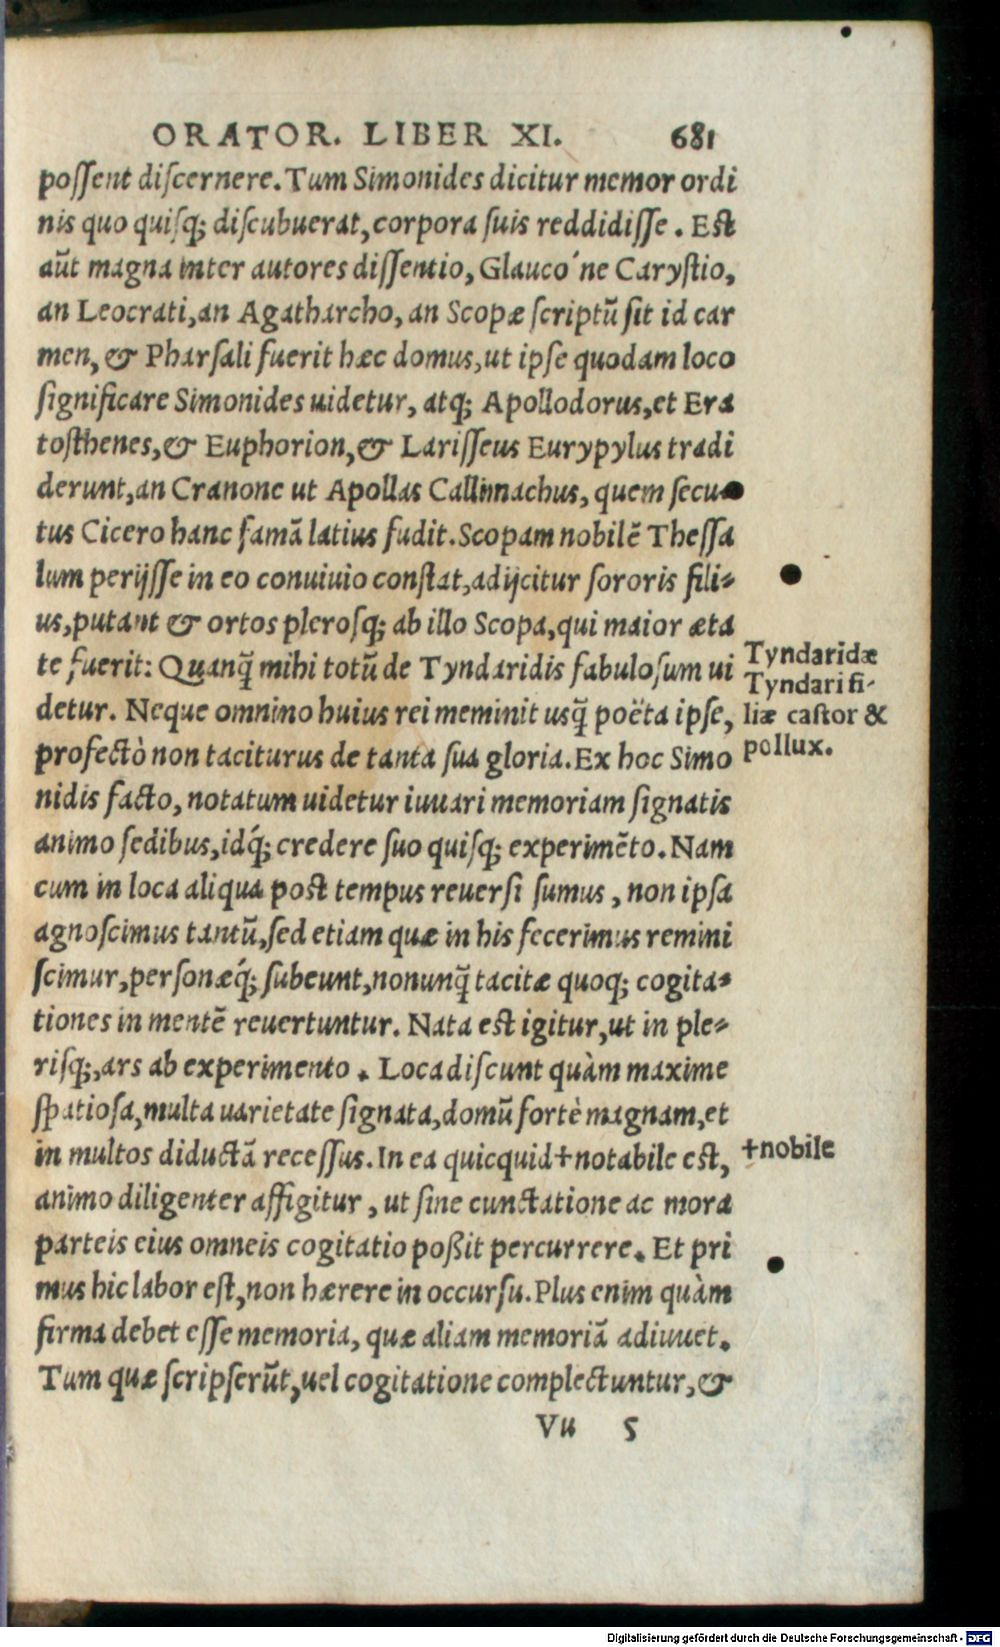 ORATOR. LIBER XI. 681
possent discernere. Tum Simonides dicitur memor ordi
nis quo quisq; discubuerat, corpora suis reddidisse. Est
aūt magna inter autores dissentio, Glauco´ne Carystio,
an Leocrati, an Agatharcho, an Scopæ scriptū sit id car
men, & Pharsali fuerit hæc domus, ut ipse quodam loco
significare Simonides uidetur, atq; Apollodorus, et Era
tosthenes, & Euphorion, & Larisseus Eurypylus tradi
derunt, an Cranone ut Apollas Callimachus, quem secu-
tus Cicero hanc famā latius fudit. Scopam nobilē Thessa
lum perijsse in eo conuiuio constat, adijcitur sororis fili-
us, putant & ortos plerosq; ab illo Scopa, qui maior æta
te fuerit: Quanq̄ mihi totū de Tyndaridis fabulosum ui
detur. Neque omnino huius rei meminit usq̄ poëta ipse,
profectò non taciturus de tanta sua gloria. Ex hoc Simo
nidis facto, notatum uidetur iuuari memoriam signatis
animo sedibus, idq́; credere suo quisq; experimēto. Nam
cum in loca aliqua post tempus reuersi sumus, non ipsa
agnoscimus tantū, sed etiam quæ in his fecerimus remini
scimur, personæq́; subeunt, nonunq̄ tacitæ quoq; cogita-
tiones in mentē reuertuntur. Nata est igitur, ut in ple-
risq;, ars ab experimento. Loca discunt quàm maxime
spatiosa, multa uarietate signata, domū fortè magnam, et
in multos diductā recessus. In ea quicquid †notabile est,
animo diligenter affigitur, ut sine cunctatione ac mora
parteis eius omneis cogitatio poßit percurrere. Et pri
mus hic labor est, non hærere in occursu. Plus enim quàm
firma debet esse memoria, quæ aliam memoriā adiuuet.
Tum quæ scripserūt, uel cogitatione complectuntur, &
Vu 5
Tyndaridæ
Tyndari fi-
liæ castor &
pollux.
†nobile
Digitalisierung gefördert durch die Deutsche Forschungsgemeinschaft - DFG